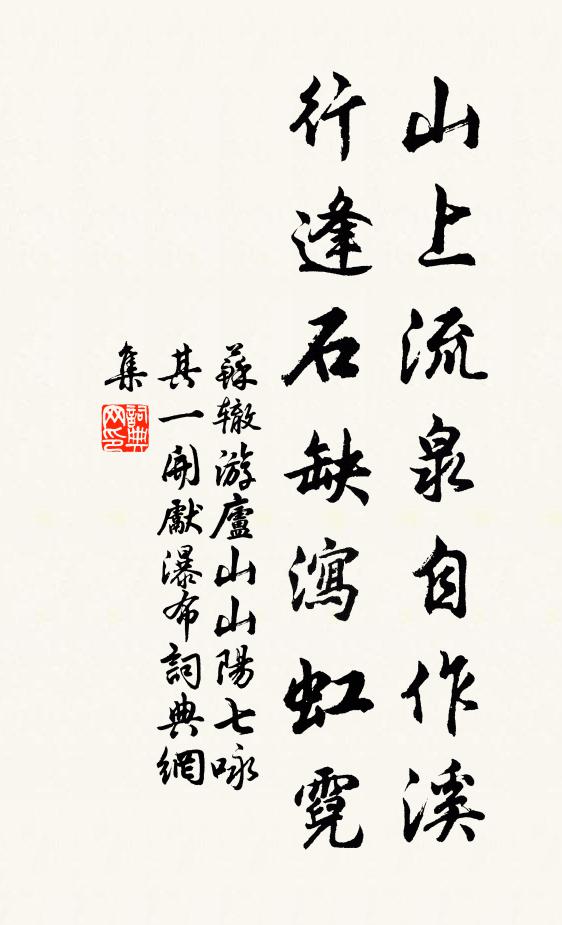 山上流泉自作溪
行逢石缺瀉虹霓
蘇辙游廬山山陽七咏
其一開獻瀑布詞典網
集
詞典
网印